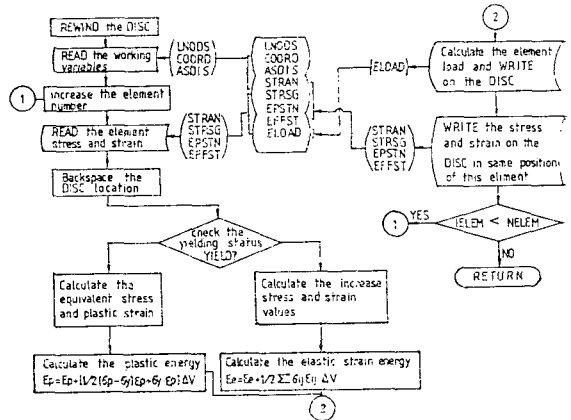 REWIND the DISC
READ the working
variables
1
increase the element
number
READ the element
stress and strain
Backspace the
DISC location
LNODS
COORD
ASDIS
STRAN
STRSG
EPSTN
EFFST
LNODS
COORD
ASDIS
STRAN
STRSG
EPSTN
EFFST
ELOAD
ELOAD
STRAN
STRSG
EPSTN
EFFST
2
Calculate the element
load and WRITE
on the DISC
WRITE the stress
and strain on the
DISC in same position
of this element
1
YES
IELEM < NELEM
NO
RETURN
Check the
yielding status
YIELD?
Calculate the
equivalent stress
and plastic strain
Calculate the increase
stress and strain
values
Calculate the plastic energy
Calculate the elastic strain energy
2